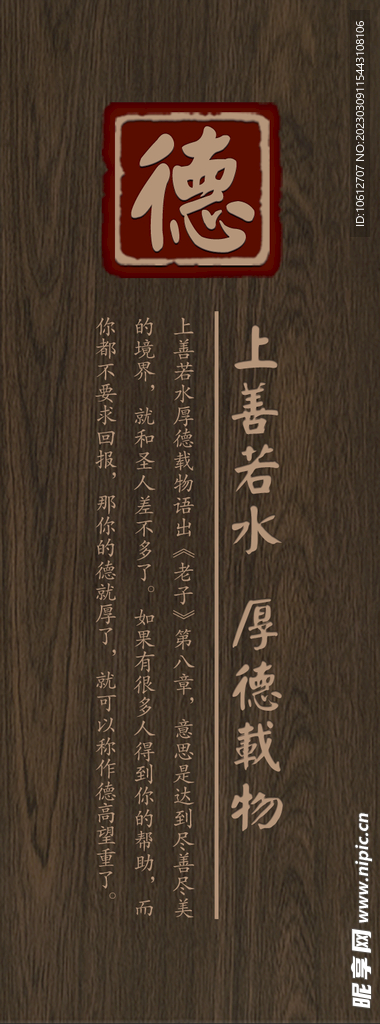 德
上善若水 厚德載物
上善若水厚德载物语出《老子》第八章，意思是达到尽善尽美
的境界，就和圣人差不多了。如果有很多人得到你的帮助，而
你都不要求回报，那你的德就厚了，就可以称作德高望重了。
ID:10612707 NO:20230309115443108106
昵享网 www.nipic.cn